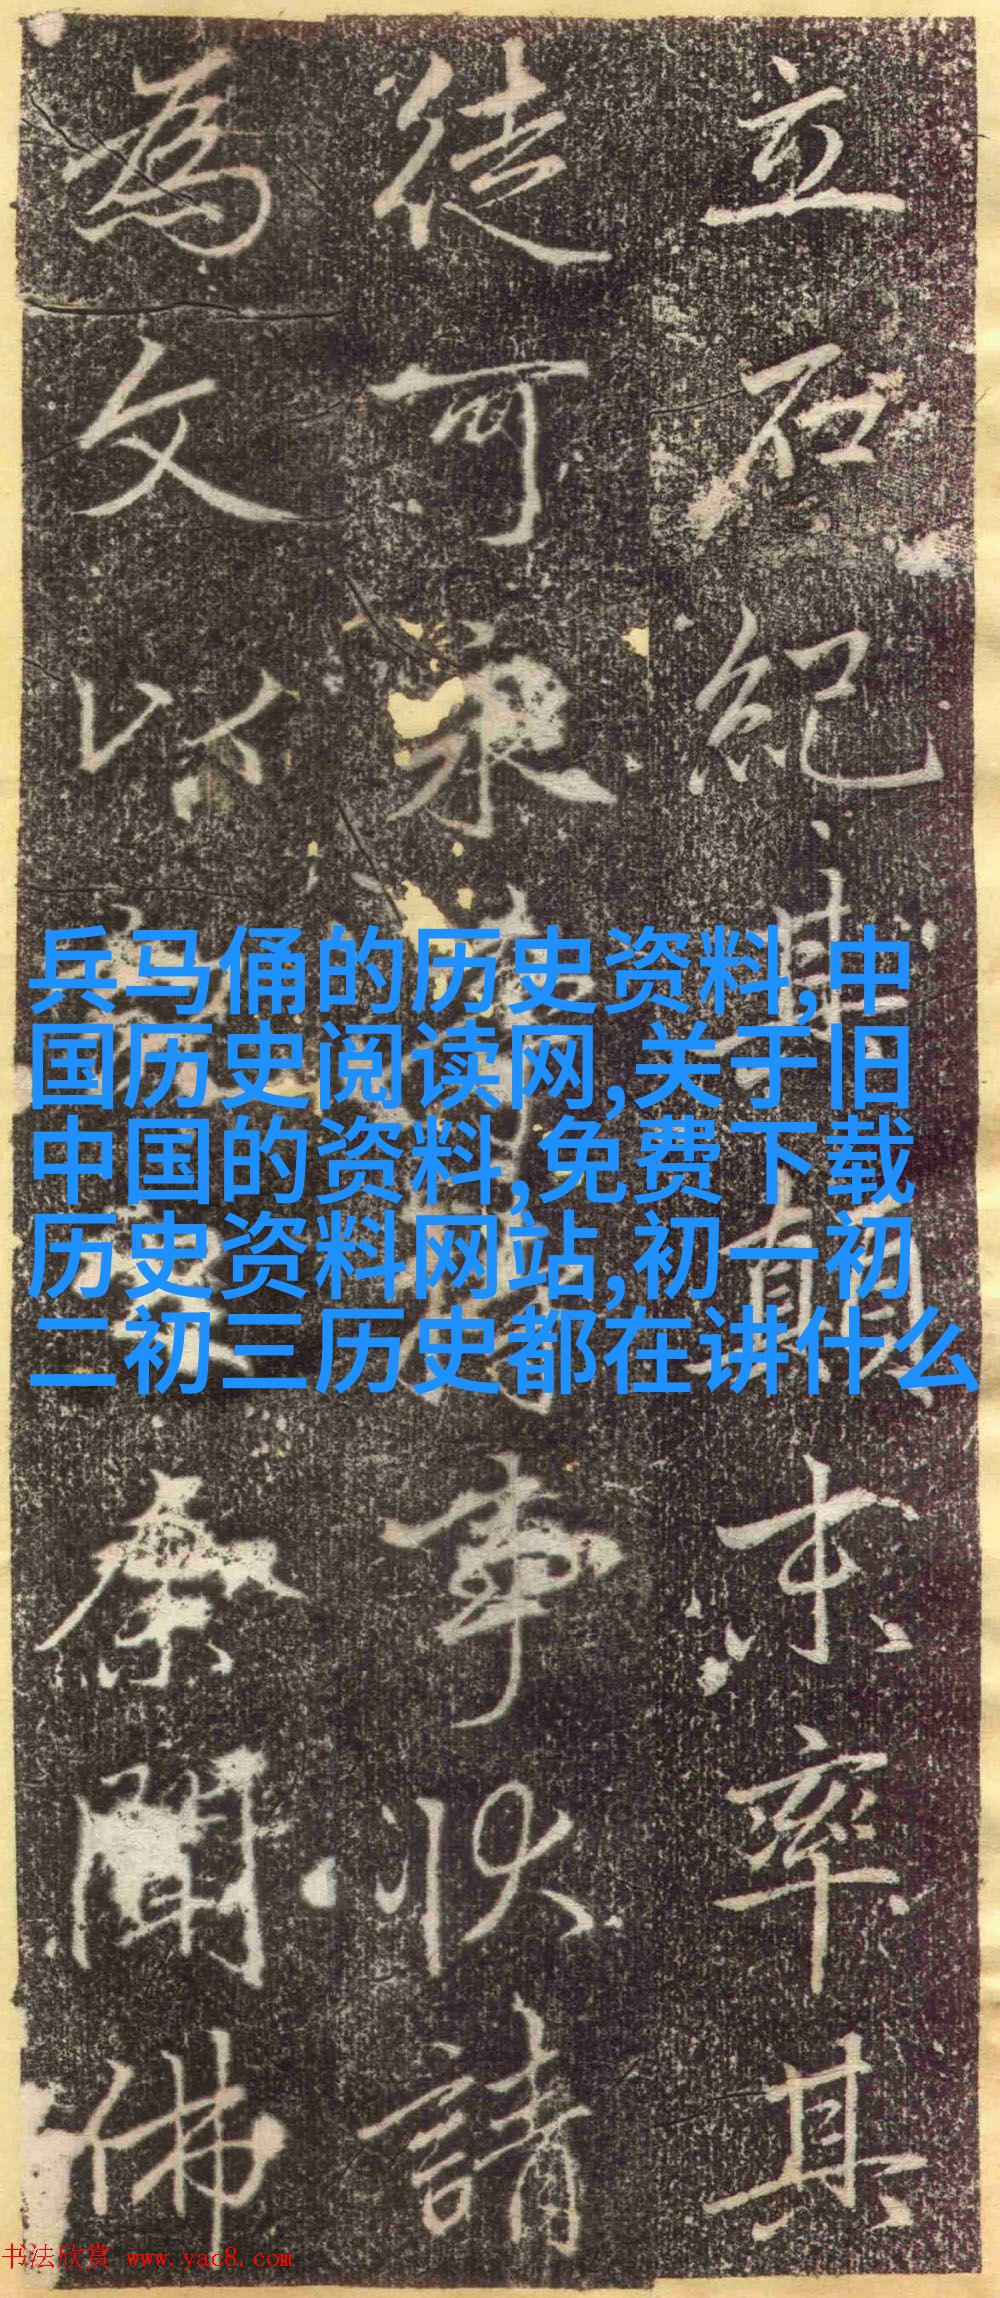 立石紀其顛末率其
徒可永事狀請
為文以余聞佛
兵马俑的历史资料,中
国历史阅读网,关于旧
中国的资料,免费下载
历史资料网站,初一初
二初三历史都在讲什么
书法欣赏 www.yac8.com